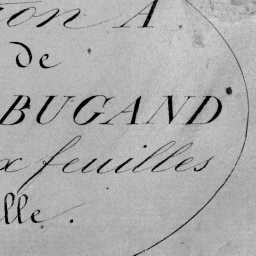 on A
de
BUGAND
x feuilles
lle.